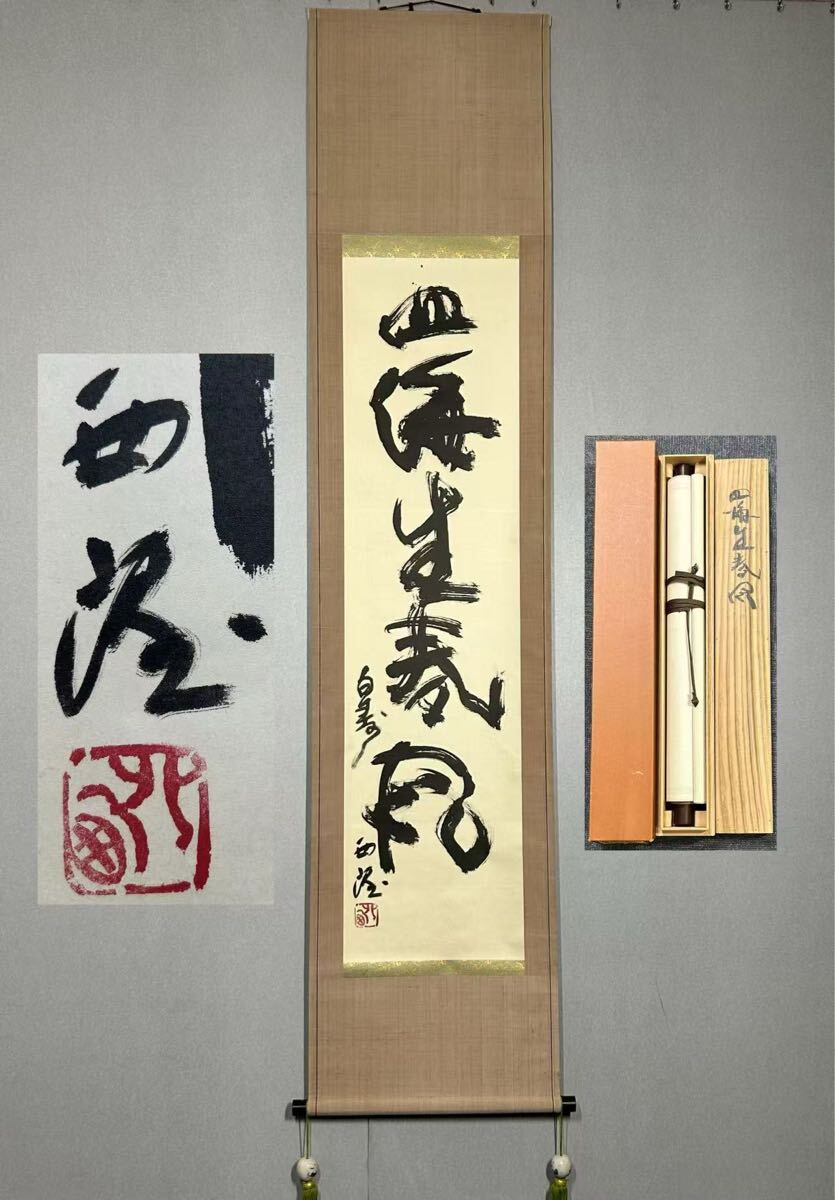 四海生春風
白寿
西望
西望
四海生春風